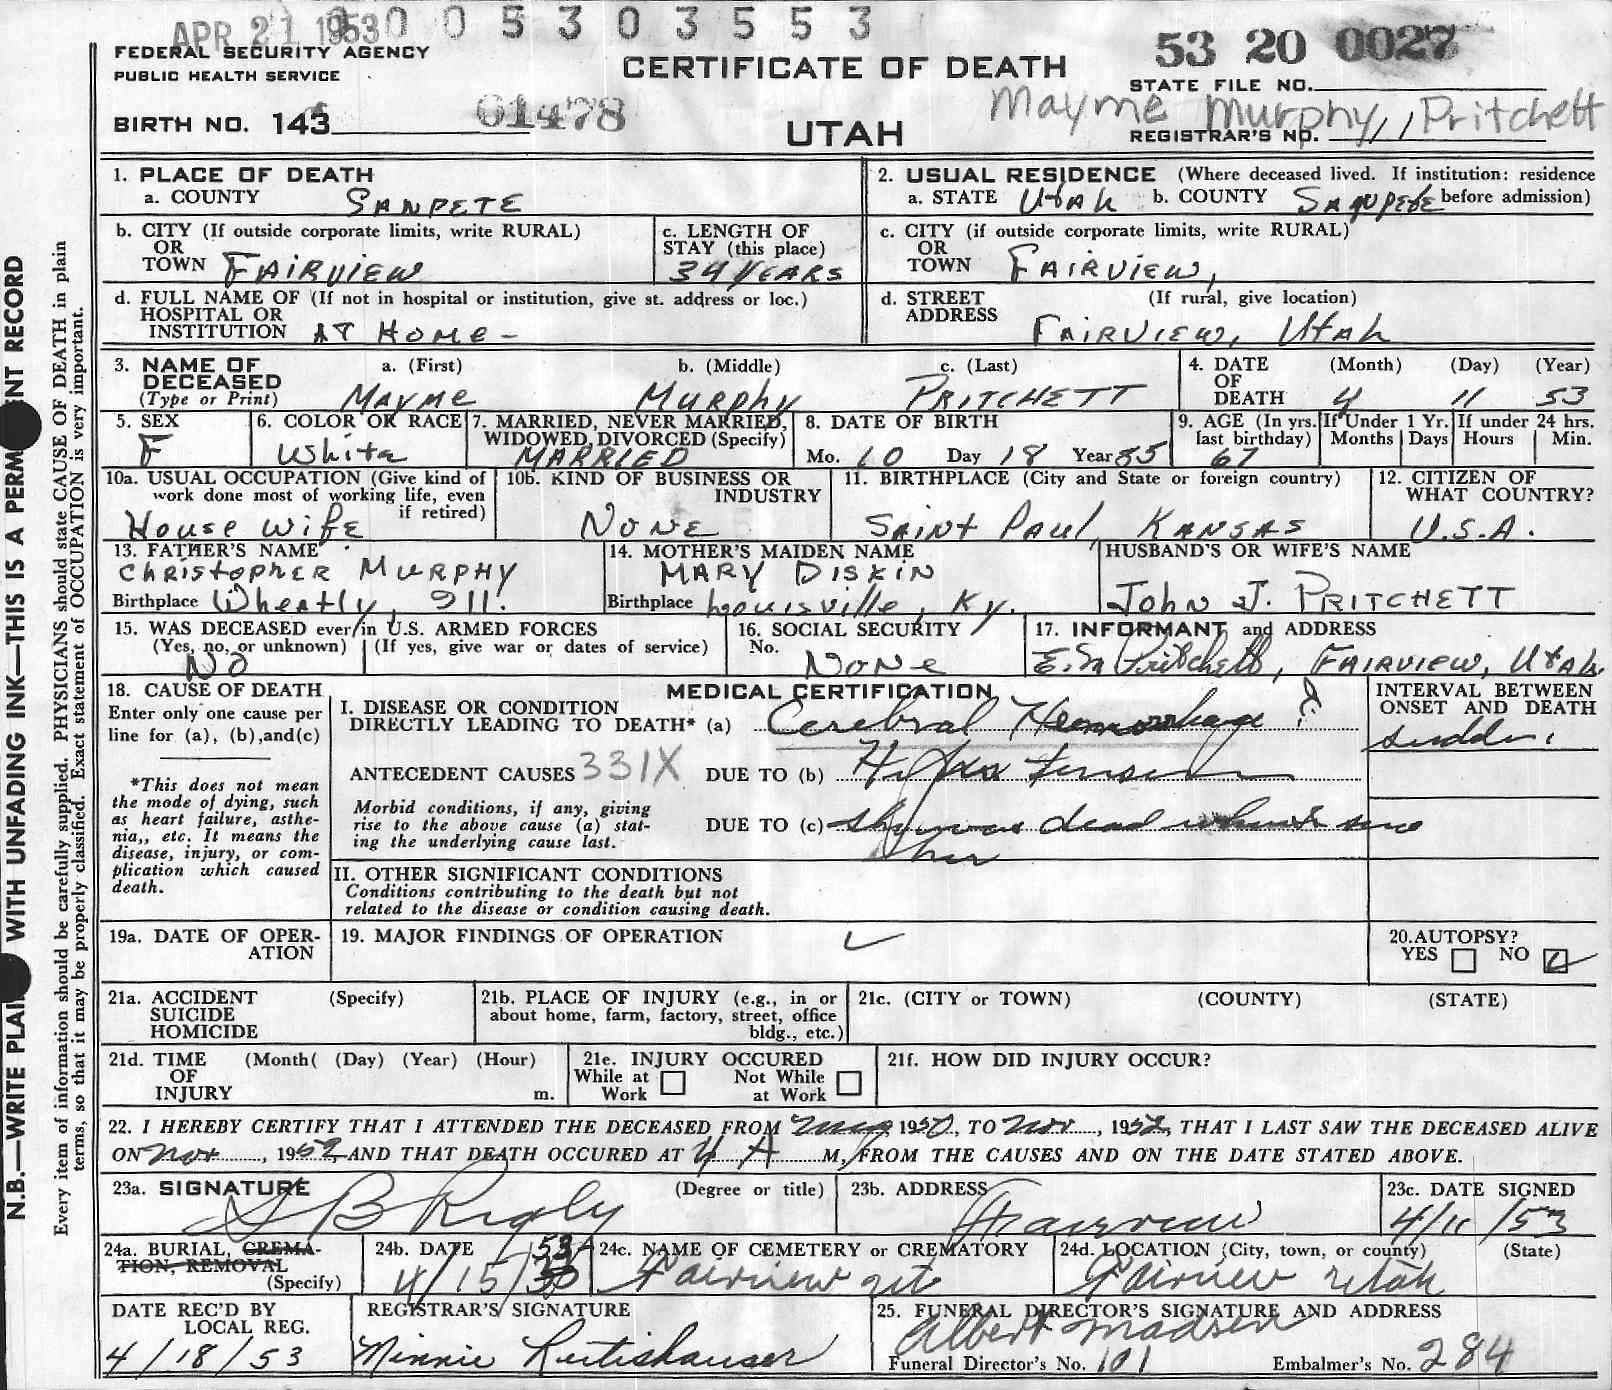 APR 21 1953 0 0 0 5 3 0 3 5 5 3
53 20 0027
FEDERAL SECURITY AGENCY
PUBLIC HEALTH SERVICE
CERTIFICATE OF DEATH
STATE FILE NO.
Mayme Murphy Pritchett
BIRTH NO. 143 61478
UTAH
REGISTRAR'S NO. 11
1. PLACE OF DEATH
a. COUNTY SANPETE
2. USUAL RESIDENCE (Where deceased lived. If institution: residence
a. STATE Utah b. COUNTY Sanpete before admission)
b. CITY (If outside corporate limits, write RURAL)
OR
TOWN FAIRVIEW
c. LENGTH OF
STAY (this place)
34 YEARS
c. CITY (if outside corporate limits, write RURAL)
OR
TOWN FAIRVIEW,
d. FULL NAME OF (If not in hospital or institution, give st. address or loc.)
HOSPITAL OR
INSTITUTION AT HOME -
d. STREET (If rural, give location)
ADDRESS
FAIRVIEW, Utah
3. NAME OF a. (First) b. (Middle) c. (Last)
DECEASED
(Type or Print) MAYME MURPHY PRITCHETT
4. DATE (Month) (Day) (Year)
OF
DEATH 4 11 53
5. SEX
F
6. COLOR OR RACE
White
7. MARRIED, NEVER MARRIED,
WIDOWED, DIVORCED (Specify)
MARRIED
8. DATE OF BIRTH
Mo. 10 Day 18 Year 85
9. AGE (In yrs.
last birthday)
67
If Under 1 Yr.
Months Days
If under 24 hrs.
Hours Min.
10a. USUAL OCCUPATION (Give kind of
work done most of working life, even
if retired)
House wife
10b. KIND OF BUSINESS OR
INDUSTRY
NONE
11. BIRTHPLACE (City and State or foreign country)
SAINT PAUL, KANSAS
12. CITIZEN OF
WHAT COUNTRY?
U.S.A.
13. FATHER'S NAME
CHRISTOPHER MURPHY
Birthplace Wheatly, Ill.
14. MOTHER'S MAIDEN NAME
MARY DISKIN
Birthplace Louisville, Ky.
HUSBAND'S OR WIFE'S NAME
JOHN J. PRITCHETT
15. WAS DECEASED ever in U.S. ARMED FORCES
(Yes, no, or unknown) (If yes, give war or dates of service)
NO
16. SOCIAL SECURITY
No.
NONE
17. INFORMANT and ADDRESS
E.M Pritchett, FAIRVIEW, Utah
18. CAUSE OF DEATH
Enter only one cause per
line for (a), (b), and(c)
*This does not mean
the mode of dying, such
as heart failure, asthe-
nia,, etc. It means the
disease, injury, or com-
plication which caused
death.
MEDICAL CERTIFICATION
I. DISEASE OR CONDITION
DIRECTLY LEADING TO DEATH* (a) Cerebral Hemorrhage ?
ANTECEDENT CAUSES 331X DUE TO (b) Hypertension
Morbid conditions, if any, giving
rise to the above cause (a) stat-
ing the underlying cause last.
DUE TO (c) She was dead when I saw
her
INTERVAL BETWEEN
ONSET AND DEATH
sudden
II. OTHER SIGNIFICANT CONDITIONS
Conditions contributing to the death but not
related to the disease or condition causing death.
19a. DATE OF OPER-
ATION
19. MAJOR FINDINGS OF OPERATION
20. AUTOPSY?
YES NO
21a. ACCIDENT (Specify)
SUICIDE
HOMICIDE
21b. PLACE OF INJURY (e.g., in or
about home, farm, factory, street, office
bldg., etc.)
21c. (CITY or TOWN) (COUNTY) (STATE)
21d. TIME (Month( (Day) (Year) (Hour)
OF
INJURY m.
21e. INJURY OCCURED
While at Work Not While at Work
21f. HOW DID INJURY OCCUR?
22. I HEREBY CERTIFY THAT I ATTENDED THE DECEASED FROM 1950, TO Nov, 1952, THAT I LAST SAW THE DECEASED ALIVE
ON Nov, 1952, AND THAT DEATH OCCURED AT 4 A M, FROM THE CAUSES AND ON THE DATE STATED ABOVE.
23a. SIGNATURE (Degree or title)
S B Rigby
23b. ADDRESS
Fairview
23c. DATE SIGNED
4/11/53
24a. BURIAL, CREMA-
TION, REMOVAL
(Specify)
24b. DATE
4/15/53
24c. NAME OF CEMETERY or CREMATORY
Fairview
24d. LOCATION (City, town, or county) (State)
Fairview Utah
DATE REC'D BY
LOCAL REG.
4/18/53
REGISTRAR'S SIGNATURE
Minnie Rutishauser
25. FUNERAL DIRECTOR'S SIGNATURE AND ADDRESS
Albert Madsen
Funeral Director's No. 101 Embalmer's No. 284
N.B.—WRITE PLAI WITH UNFADING INK—THIS IS A PERM ENT RECORD
Every item of information should be carefully supplied. PHYSICIANS should state CAUSE OF DEATH in plain
terms, so that it may be properly classified. Exact statement of OCCUPATION is very important.